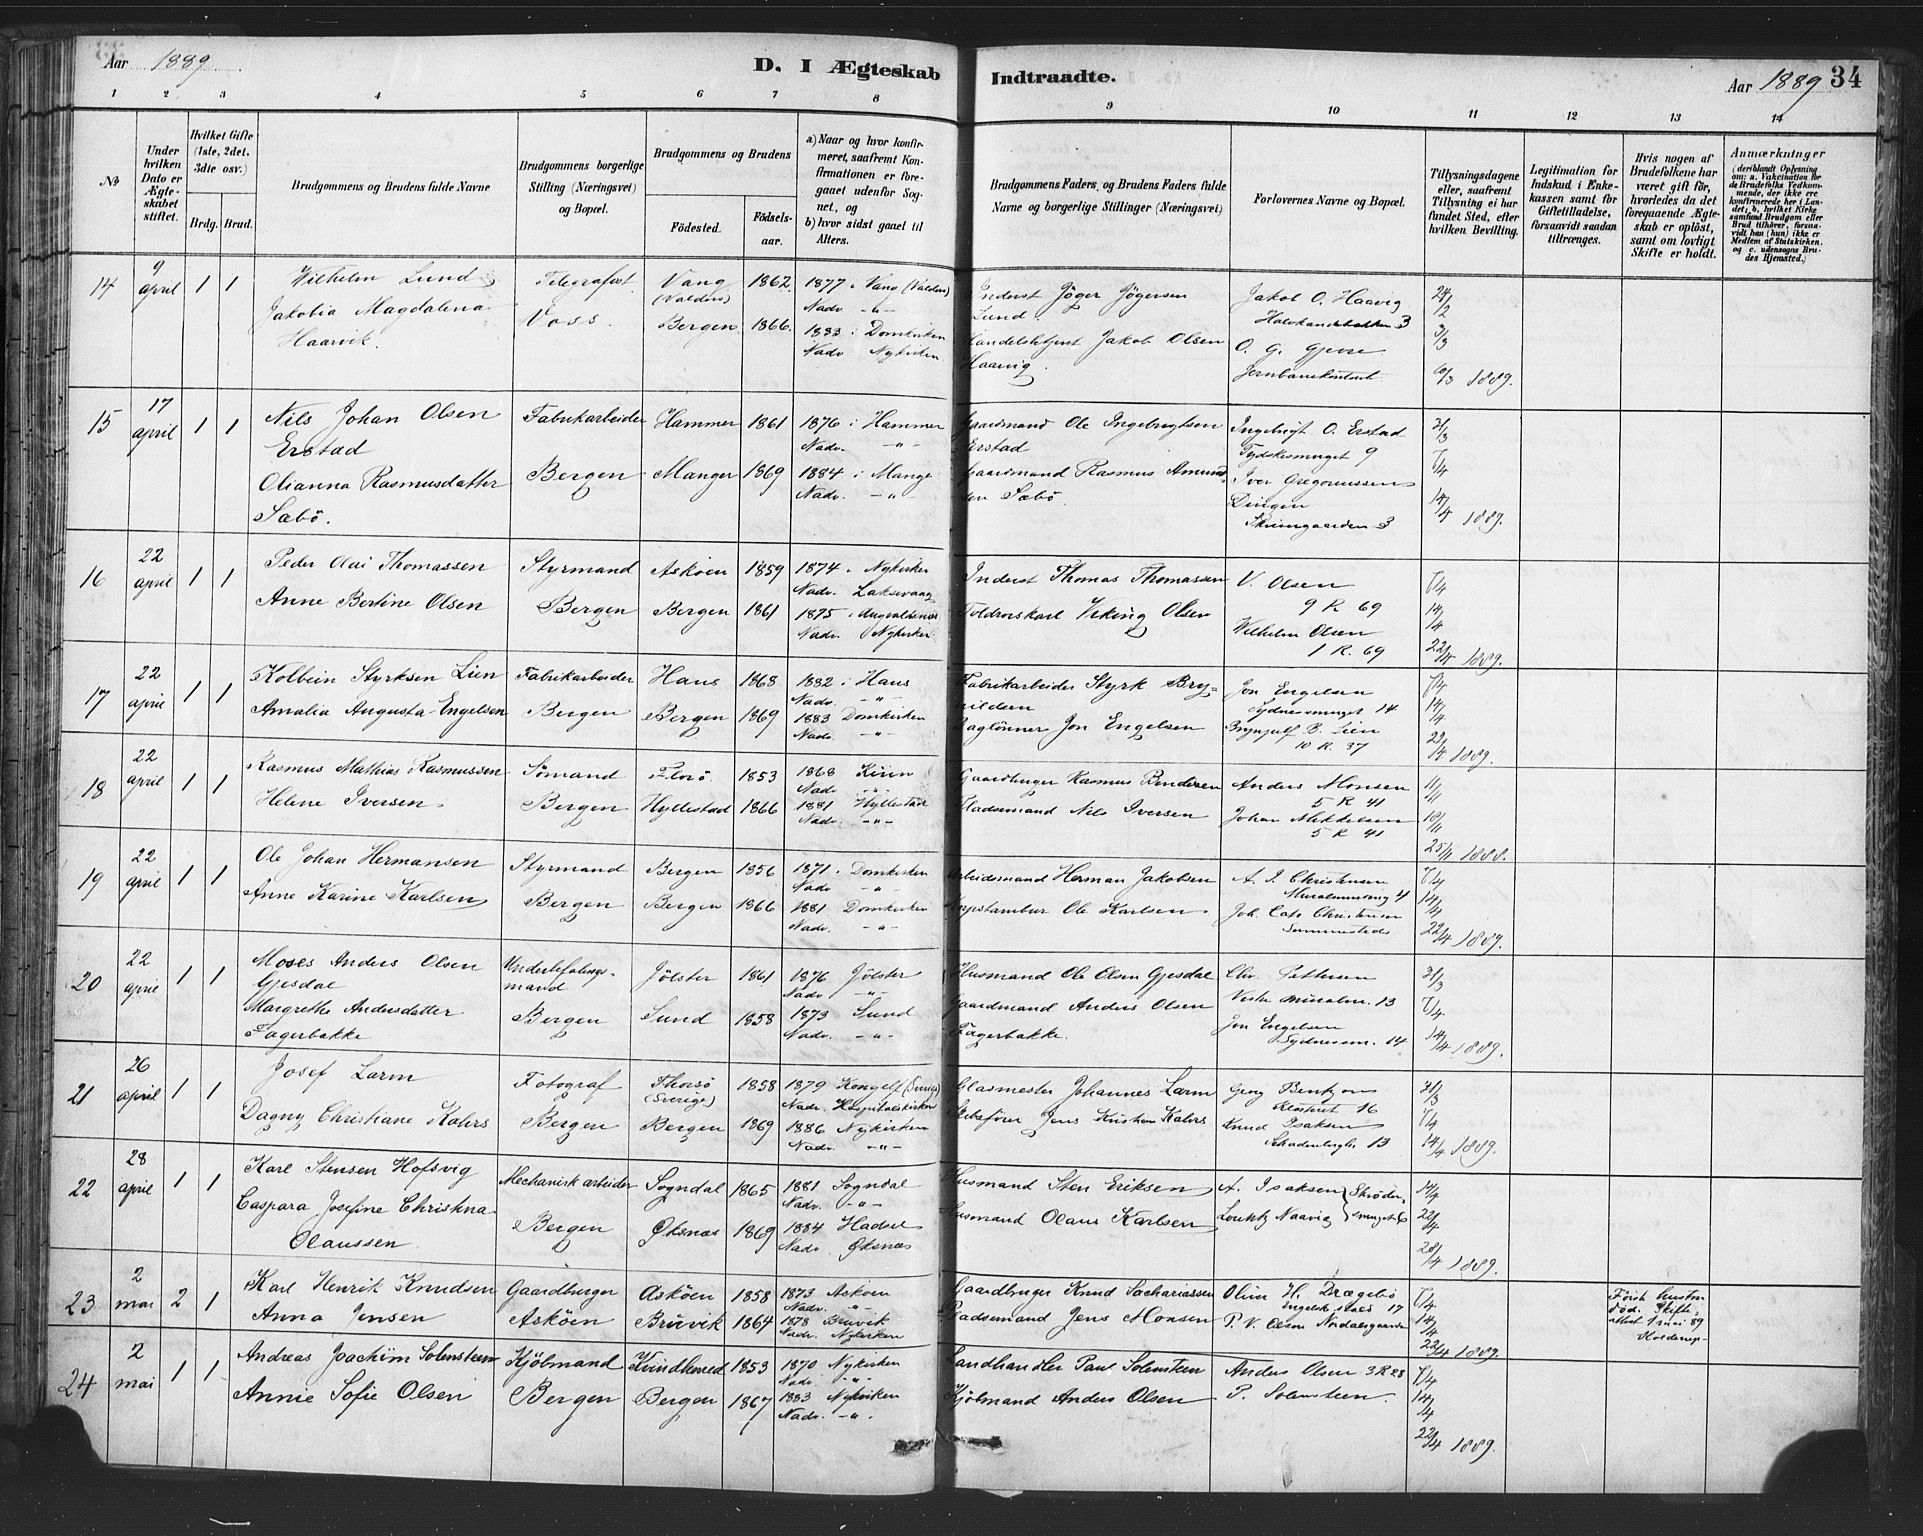 Aar 1889
D. I Ægteskab Indtraadte.
Aar 1889 34
1 2 3 4 5 6 7 8 9 10 11 12 13 14
No
Under hvilken Dato er Ægteskabet stiftet.
Hvilket Gifte (1ste, 2det, 3die osv.)
Brdg. Brud.
Brudgommens og Brudens fulde Navne
Brudgommens borgerlige Stilling (Næringsvei) og Bopæl.
Brudgommens og Brudens
Fødested. Fødsels-aar.
a) Naar og hvor konfirmeret, saafremt Konfirmationen er foregaaet udenfor Sognet, og
b) hvor sidst gaaet til Alters.
Brudgommens Faders, og Brudens Faders fulde Navne og borgerlige Stillinger (Næringsvei)
Forlovernes Navne og Bopæl.
Tillysningsdagene eller, saafremt Tillysning ei har fundet Sted, efter hvilken Bevilling.
Legitimation for Indskud i Enkekassen samt for Giftetilladelse, forsaavidt saadan tiltrænges.
Hvis nogen af Brudefolkene har været gift før, hvorledes da det foregaaende Ægteskab er opløst, samt om lovligt Skifte er holdt.
Anmærkninger
(deriblandt Oplysning om: a. Vakcination for de Brudefolks Vedkommende, der ikke ere konfirmerede her i Landet; b. hvilket Kirkesamfund Brudgom eller Brud tilhører, forsaavidt han (hun) ikke er Medlem af Statskirken, og c. udensogns Brudes Hjemsted.)
14 9 april 1 1 Wilhelm Lund Telegrafist Vang (Valders) 1862. 1877 i Vang (Valders) Nadv. -"- Inderst Jöger Jögersen Lund. Jakob O. Haavig 24/2
Jakobia Magdalena Haarvik. Voss. Bergen 1866. 1883 i Domkirken Nadv Nykirken Handelsbetjent Jakob Olsen Haavig. O. G. Gjerre Jernbanekontoret 3/3 10/3 1889.
15 17 april 1 1 Nils Johan Olsen Erstad Fabrikarbeider Hammer 1861 1876 i Hammer Nadv. -"- Gaardmand Ole Ingebrigtsen Erstad Ingebrigt O. Erstad Tydskesmuget 9 31/3
Olianna Rasmusdatter Sæbö. Bergen Manger 1869 1884 i Mange Nadv. -"- Gaardmand Rasmus Amundsen Sæbö. Iver Gregoriussen Dingen Skivingaarden 3 7/4 14/4 1889.
16 22 april 1 1 Peder Olai Thomassen Styrmand Asköen 1859 1874 i Nykirken Nadv. Laksevaag Inderst Thomas Thomassen V. Olsen 9 R. 69 7/4
Anne Bertine Olsen Bergen Bergen 1861 1875 i Nadv. Nykirken Toldroerskarl Viking Olsen Wilhelm Olsen 1 R. 69 14/4 22/4 1889.
17 22 april 1 1 Kolbein Styrksen Lien Fabrikarbeider Haus 1868 1882 i Haus Nadv. -"- Fabrikarbeider Styrk Brynildsen Jon Engelsen Sydnessmuget 14 7/4
Amalia Augusta Engelsen Bergen Bergen 1869 1883 Domkirken Nadv. -"- Daglönner Jon Engelsen Brynjulf B. Lien 10 R. 37 14/4 22/4 1889.
18 22 april 1 1 Rasmus Mathias Rasmussen Sömand Florö. 1853 1868 Kinn Nadv. -"- Gaardbruger Rasmus Bendixen Anders Monsen 5 R 41 11/11
Helene Iversen Bergen Hyllestad 1866 1881 Hyllestad Nadv. -"- Pladsemand Nils Iversen Johan Mikkelsen 5 R 41 18/11 25/11 1888.
19 22 april 1 1 Ole Johan Hermansen Styrmand Bergen 1856 1871 i Domkirken Nadv -"- Arbeidsmand Herman Jakobsen A. J. Christensen Muralmenning 4 7/4
Anne Karine Karlsen Bergen Bergen 1866 1881 Domkirken Nadv. -"- Ole Karlsen Joh. Cato Christensen 14/4 22/4 1889.
20 22 april 1 1 Moses Anders Olsen Gjesdal Underbefalingsmand Jölster 1861 1876 Jölster Nadv -"- Husmand Ole Olsen Gjesdal Chr. Pettersen Vestre Muralm. 13 31/3
Margrethe Andersdatter Fagerbakke Bergen Sund 1858 1873 Sund Nadv. -"- Gaardmand Anders Olsen Fagerbakke. Jon Engelsen Sydnessm. 14 7/4 14/4 1889.
21 26 april 1 1 Josef Larm Fotograf Thorsö (Sverige) 1858 1879 Kongelf (Sverige) Nadv. Hospitalskirken Glasmester Johannes Larm Georg Bentzon Klosteret 16 31/3
Dagny Christiane Kahrs Bergen Bergen 1869 1886 Nykirken Nadv. -"- Skibsförer Jens Kristian Kahrs Knud Isaksen 13 7/4 14/4 1889.
22 28 april 1 1 Karl Stensen Hofsvig Mechanisk arbeider Sogndal 1865 1881 Sogndal Nadv. -"- Husmand Sten Eriksen A. Isaksen Skrödersmuget 6 14/4
Caspara Josefine Christina Olaussen Bergen Öksnæs 1869 1884 Hadsel Nadv. Öksnæs Husmand Olaus Karlsen Naavig 22/4 28/4 1889.
23 2 mai 2 1 Karl Henrik Knudsen Gaardbruger Asköen 1858 1873 Asköen Nadv. -"- Gaardbruger Knud Sachariassen Olina H. Drægebö 17 7/4 Første hustru död. Skifteattest 1 mai 89
Anna Jensen Asköen Brüvik 1864 1878 Brüvik Nadv. Nykirken Pladsemand Jens Monsen P. V. Olsen Nordalsgaarden 14/4 22/4 1889.
24 2 mai 1 1 Andreas Joachim Solensteen Kjölmand Kvindherred 1853 1870 Nykirken Nadv. -"- Landhandler Paul Solensteen Anders Olsen 3 R 28 7/4
Annie Sofie Olsen Bergen Bergen 1867 1883 Nykirken Nadv. -"- Kjölmand Anders Olsen P. Solensteen. 14/4 22/4 1889.